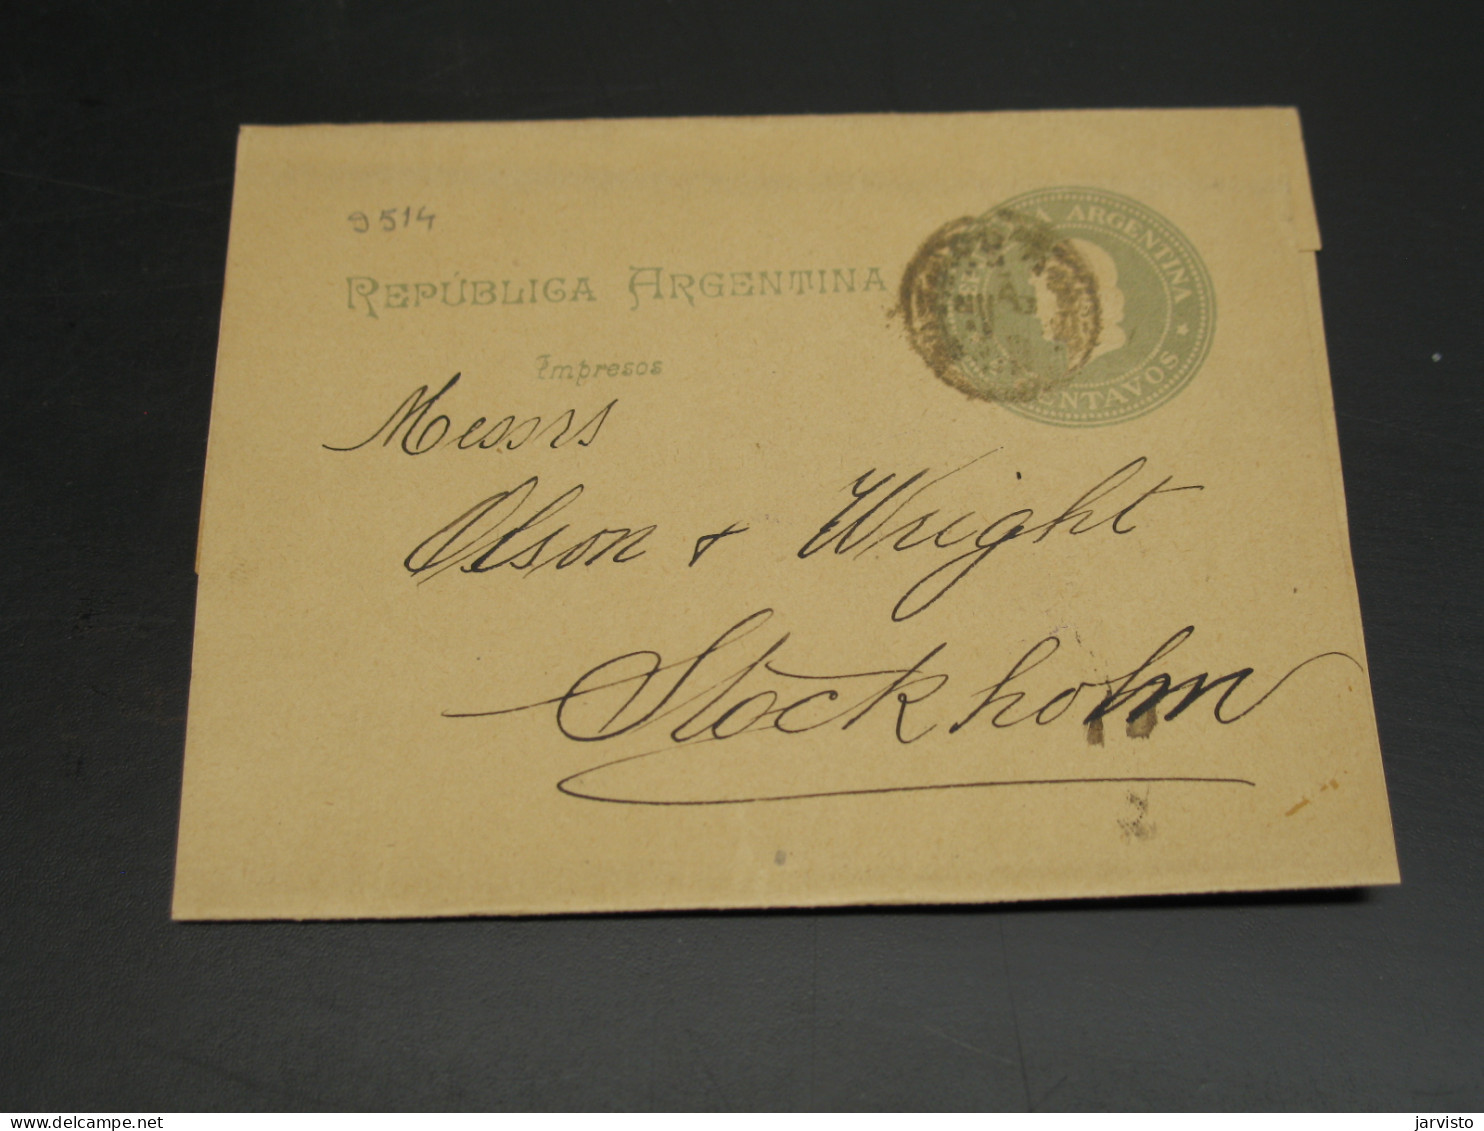 9514
REPÚBLICA ARGENTINA
Impresos
ARGENTINA
CENTAVOS
Messrs
Olson & Wright
Stockholm
delcampe.net
jarvisto